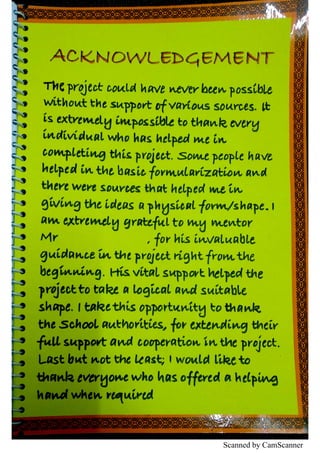 ACKNOWLEDGEMENT
The project could have never been possible
without the support of various sources. It
is extremely impossible to thank every
individual who has helped me in
completing this project. Some people have
helped in the basic formularization and
there were sources that helped me in
giving the ideas a physical form/shape. I
am extremely grateful to my mentor
Mr , for his invaluable
guidance in the project right from the
beginning. His vital support helped the
project to take a logical and suitable
shape. I take this opportunity to thank
the School authorities, for extending their
full support and cooperation in the project.
Last but not the least; I would like to
thank everyone who has offered a helping
hand when required
Scanned by CamScanner